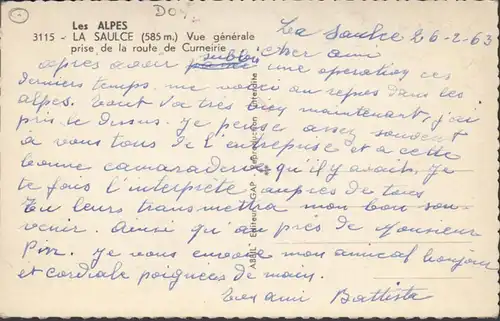 DO
Les ALPES
3115 - LA SAULCE (585 m.) Vue générale
prise de la route de Curneirie
La Saulce 26-2-63
Cher ami
après avoir subbie une operation ces
derniers temps. me voici au repos dans les
alpes. Tout va très bien maintenant, j'ai
pris le dessus. je pense assez souvent
à vous tous de l'entreprise et a cette
bonne camaraderie qu'il y avait. je
te fais l'interprète auprès de tous
Tu leurs transmettra mon bon sou-
venir. Ainsi qu'au près de Monsieur
je vous envoie mon amical bonjour
et cordiale poignées de main.
Ton ami Battista
ABRIL Editeur GAP Reproduction interdite